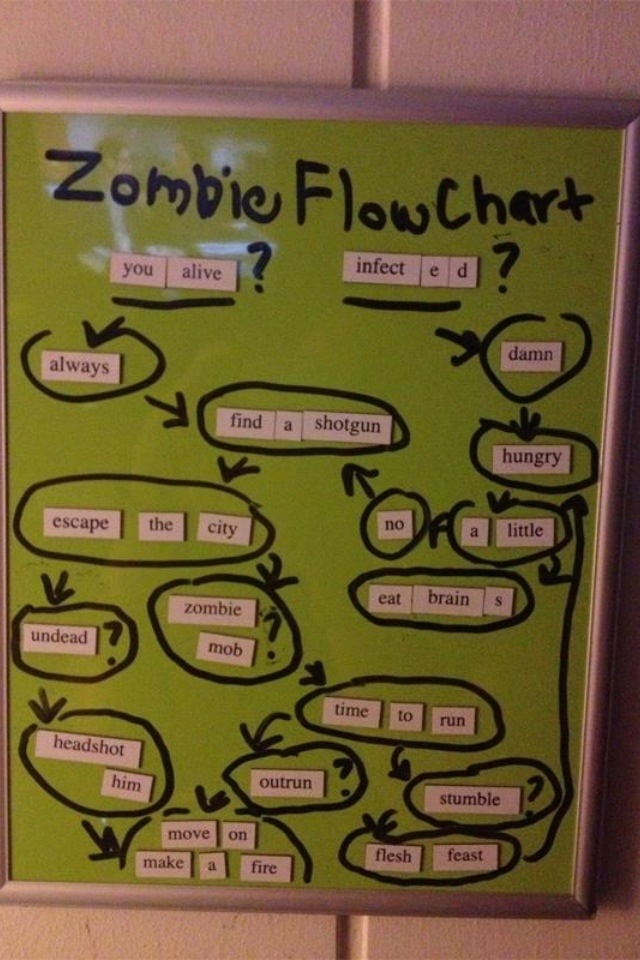 Zombie FlowChart
you alive ?
infect e d ?
always
damn
find a shotgun
hungry
escape the city
no
a little
eat brain s
zombie mob ?
undead ?
time to run
headshot him
outrun ?
stumble ?
move on
make a fire
flesh feast